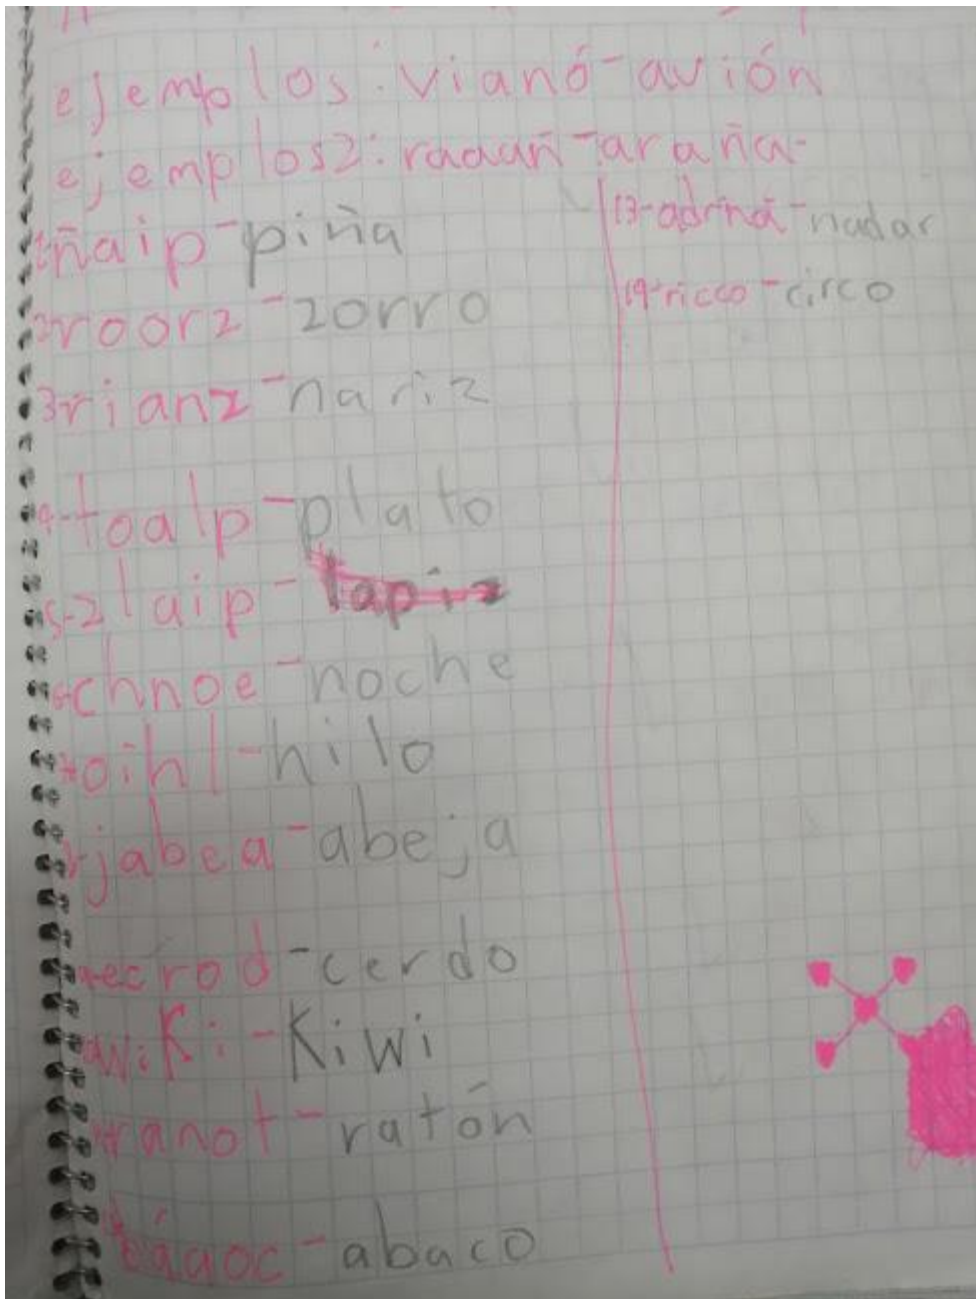 ejemplos: vianó-avión
ejemplos2: raaañ-araña-
1ñaip-piña
2roorz-zorro
3rianz-nariz
4-toalp-plato
5-zlaip-lapiz
6-chnoe-noche
7-oihl-hilo
jabea-abeja
ecrod-cerdo
wiki-Kiwi
ranot-ratón
báaoc-abaco
13-adrna-nadar
14-ricco-circo